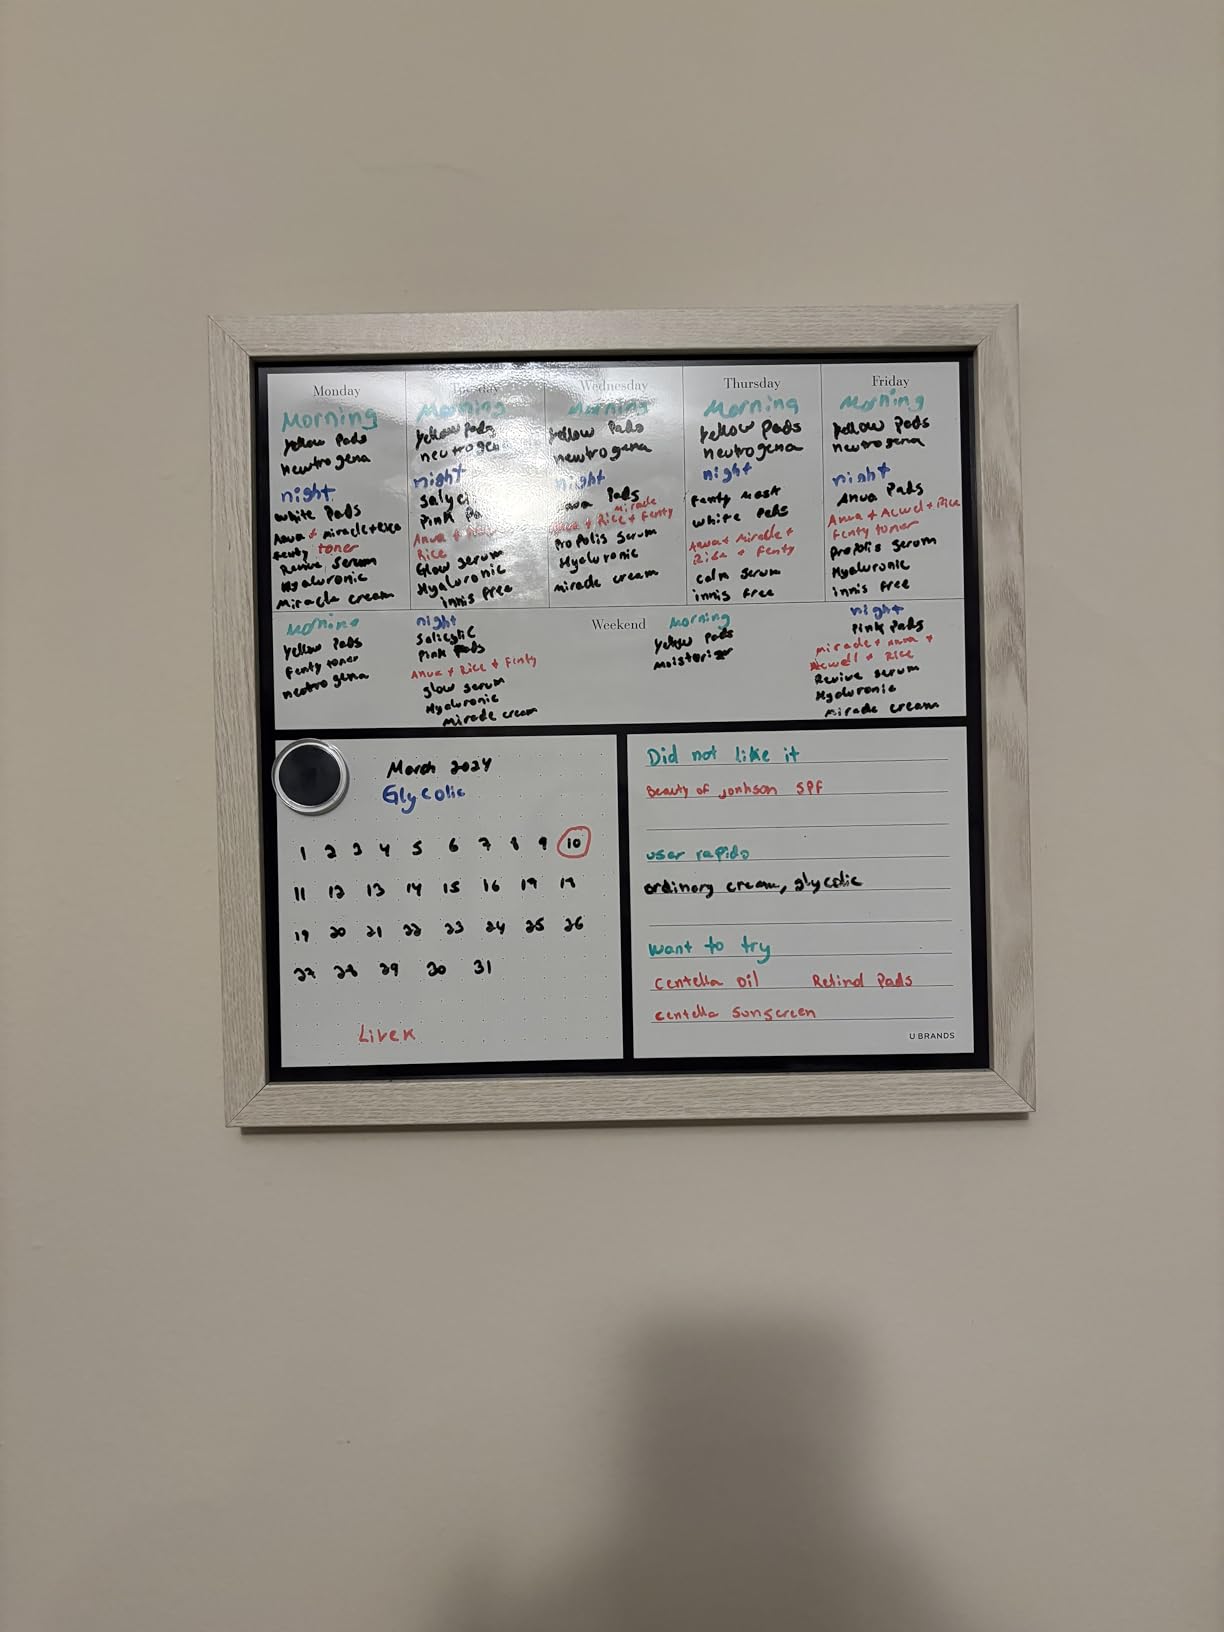 Monday
Morning
Yellow Pads
neutrogena
night
white Pads
Anua + miracle + Rice
Fenty toner
Revive Serum
Hyaluronic
Miracle cream
Tuesday
Morning
Yellow Pads
neutrogena
night
Pink
Anua +
Rice
Glow serum
Hyaluronic
innis free
Wednesday
Morning
Yellow Pads
neutrogena
night
Pads
miracle
+ Rice + Fenty
Propolis Serum
Hyaluronic
miracle cream
Thursday
Morning
Yellow Pads
neutrogena
night
Fenty Mask
white Pads
Miracle +
Rice + Fenty
calm Serum
innis free
Friday
Morning
Yellow Pads
neutrogena
night
Anua Pads
Anua + Acwel + Rice
Fenty toner
Propolis Serum
Hyaluronic
innis free
Weekend
Morning
Yellow Pads
Fenty toner
neutrogena
night
Salicylic
Pink Pads
Anua + Rice + Fenty
glow serum
Hyaluronic
Miracle cream
Morning
Yellow Pads
moisturizer
night
Pink Pads
miracle + Anua +
Acwell + Rice
Revive serum
Hyaluronic
Miracle cream
March 2024
Glycolic
1 2 3 4 5 6 7 8 9 10
11 12 13 14 15 16 19 19
19 20 21 22 23 24 25 26
27 28 29 30 31
Liver
Did not like it
Beauty of jonhson SPF
user rapido
ordinary cream, glycolic
Want to try
centella oil Retinol Pads
centella Sunscreen
U BRANDS